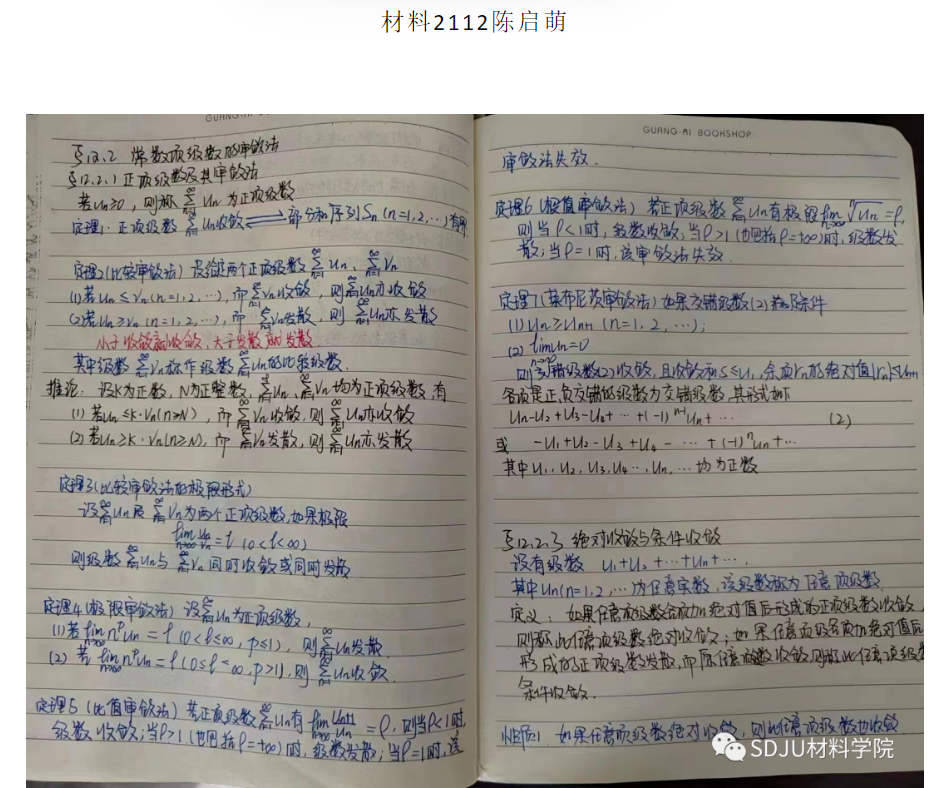 材料2112陈启萌
GUANG-MI BOOKSHOP
§12.2 常数项级数的审敛法
§12.2.1 正项级数及其审敛法
若un≥0，则称 ∑(n=1→∞) un 为正项级数
定理1. 正项级数 ∑(n=1→∞) un收敛 ⟺ 部分和序列Sn (n=1,2,…)有界
定理2(比较审敛法) 设给定两个正项级数 ∑(n=1→∞) un、∑(n=1→∞) vn
(1)若un≤vn(n=1,2,…), 而 ∑(n=1→∞) vn收敛，则 ∑(n=1→∞) un亦收敛
(2)若un≥vn (n=1,2,…), 而 ∑(n=1→∞) vn发散，则 ∑(n=1→∞) un亦发散
小于收敛就收敛，大于发散就发散
其中级数 ∑(n=1→∞) vn称作级数 ∑(n=1→∞) un的比较级数.
推论: 设K为正数, N为正整数, ∑(n=1→∞) un、∑(n=1→∞) vn均为正项级数, 有
(1) 若un≤K·vn(n≥N), 而 ∑(n=1→∞) vn收敛, 则 ∑(n=1→∞) un亦收敛
(2) 若un≥K·vn(n≥N), 而 ∑(n=1→∞) vn发散, 则 ∑(n=1→∞) un亦发散
定理3(比较审敛法的极限形式)
设 ∑(n=1→∞) un及 ∑(n=1→∞) vn为两个正项级数,如果极限
lim(n→∞) un/vn = l (0<l<∞)
则级数 ∑(n=1→∞) un与 ∑(n=1→∞) vn同时收敛或同时发散
定理4(极限审敛法) 设 ∑(n=1→∞) un为正项级数,
(1)若 lim(n→∞) n^p un = l (0<l≤∞, p≤1), 则 ∑(n=1→∞) un发散
(2) 若 lim(n→∞) n^p un = l (0≤l<∞, p>1), 则 ∑(n=1→∞) un收敛.
定理5 (比值审敛法) 若正项级数 ∑(n=1→∞) un有 lim(n→∞) un+1/un = ρ, 则当ρ<1时,
级数收敛;当ρ>1 (也包括ρ=+∞)时, 级数发散;当ρ=1时,该
GUANG-MI BOOKSHOP
审敛法失效.
定理6 (根值审敛法) 若正项级数 ∑(n=1→∞) un有极限 lim(n→∞) ⁿ√un = ρ,
则当ρ<1时, 级数收敛;当ρ>1 (也包括ρ=+∞)时, 级数发
散;当ρ=1时,该审敛法失效.
定理7(莱布尼茨审敛法) 如果交错级数(2)条件
(1) un≥un+1 (n=1,2,…);
(2) lim(n→∞) un=0
则交错级数(2)收敛, 且收敛和S≤u1, 余项rn的绝对值|rn|≤un+1
各项是正负交错的级数为交错级数, 其形式如下
u1-u2+u3-u4+…+(-1)^(n-1) un+… (2)
或 -u1+u2-u3+u4-…+(-1)^n un+…
其中u1, u2, u3, u4…, un, …均为正数
§12.2.3 绝对收敛与条件收敛
设有级数 u1+u2+…+un+…,
其中un(n=1,2,…)为任意实数, 该级数称为任意项级数
定义: 如果任意项级数各项加绝对值后形成的正项级数收敛,
则称此任意项级数绝对收敛; 如果任意项级数各项加绝对值后
形成的正项级数发散, 而原任意项级数收敛,则称此任意项级数
条件收敛.
性质1. 如果任意项级数绝对收敛, 则此任意项级数也收敛
SDJU材料学院